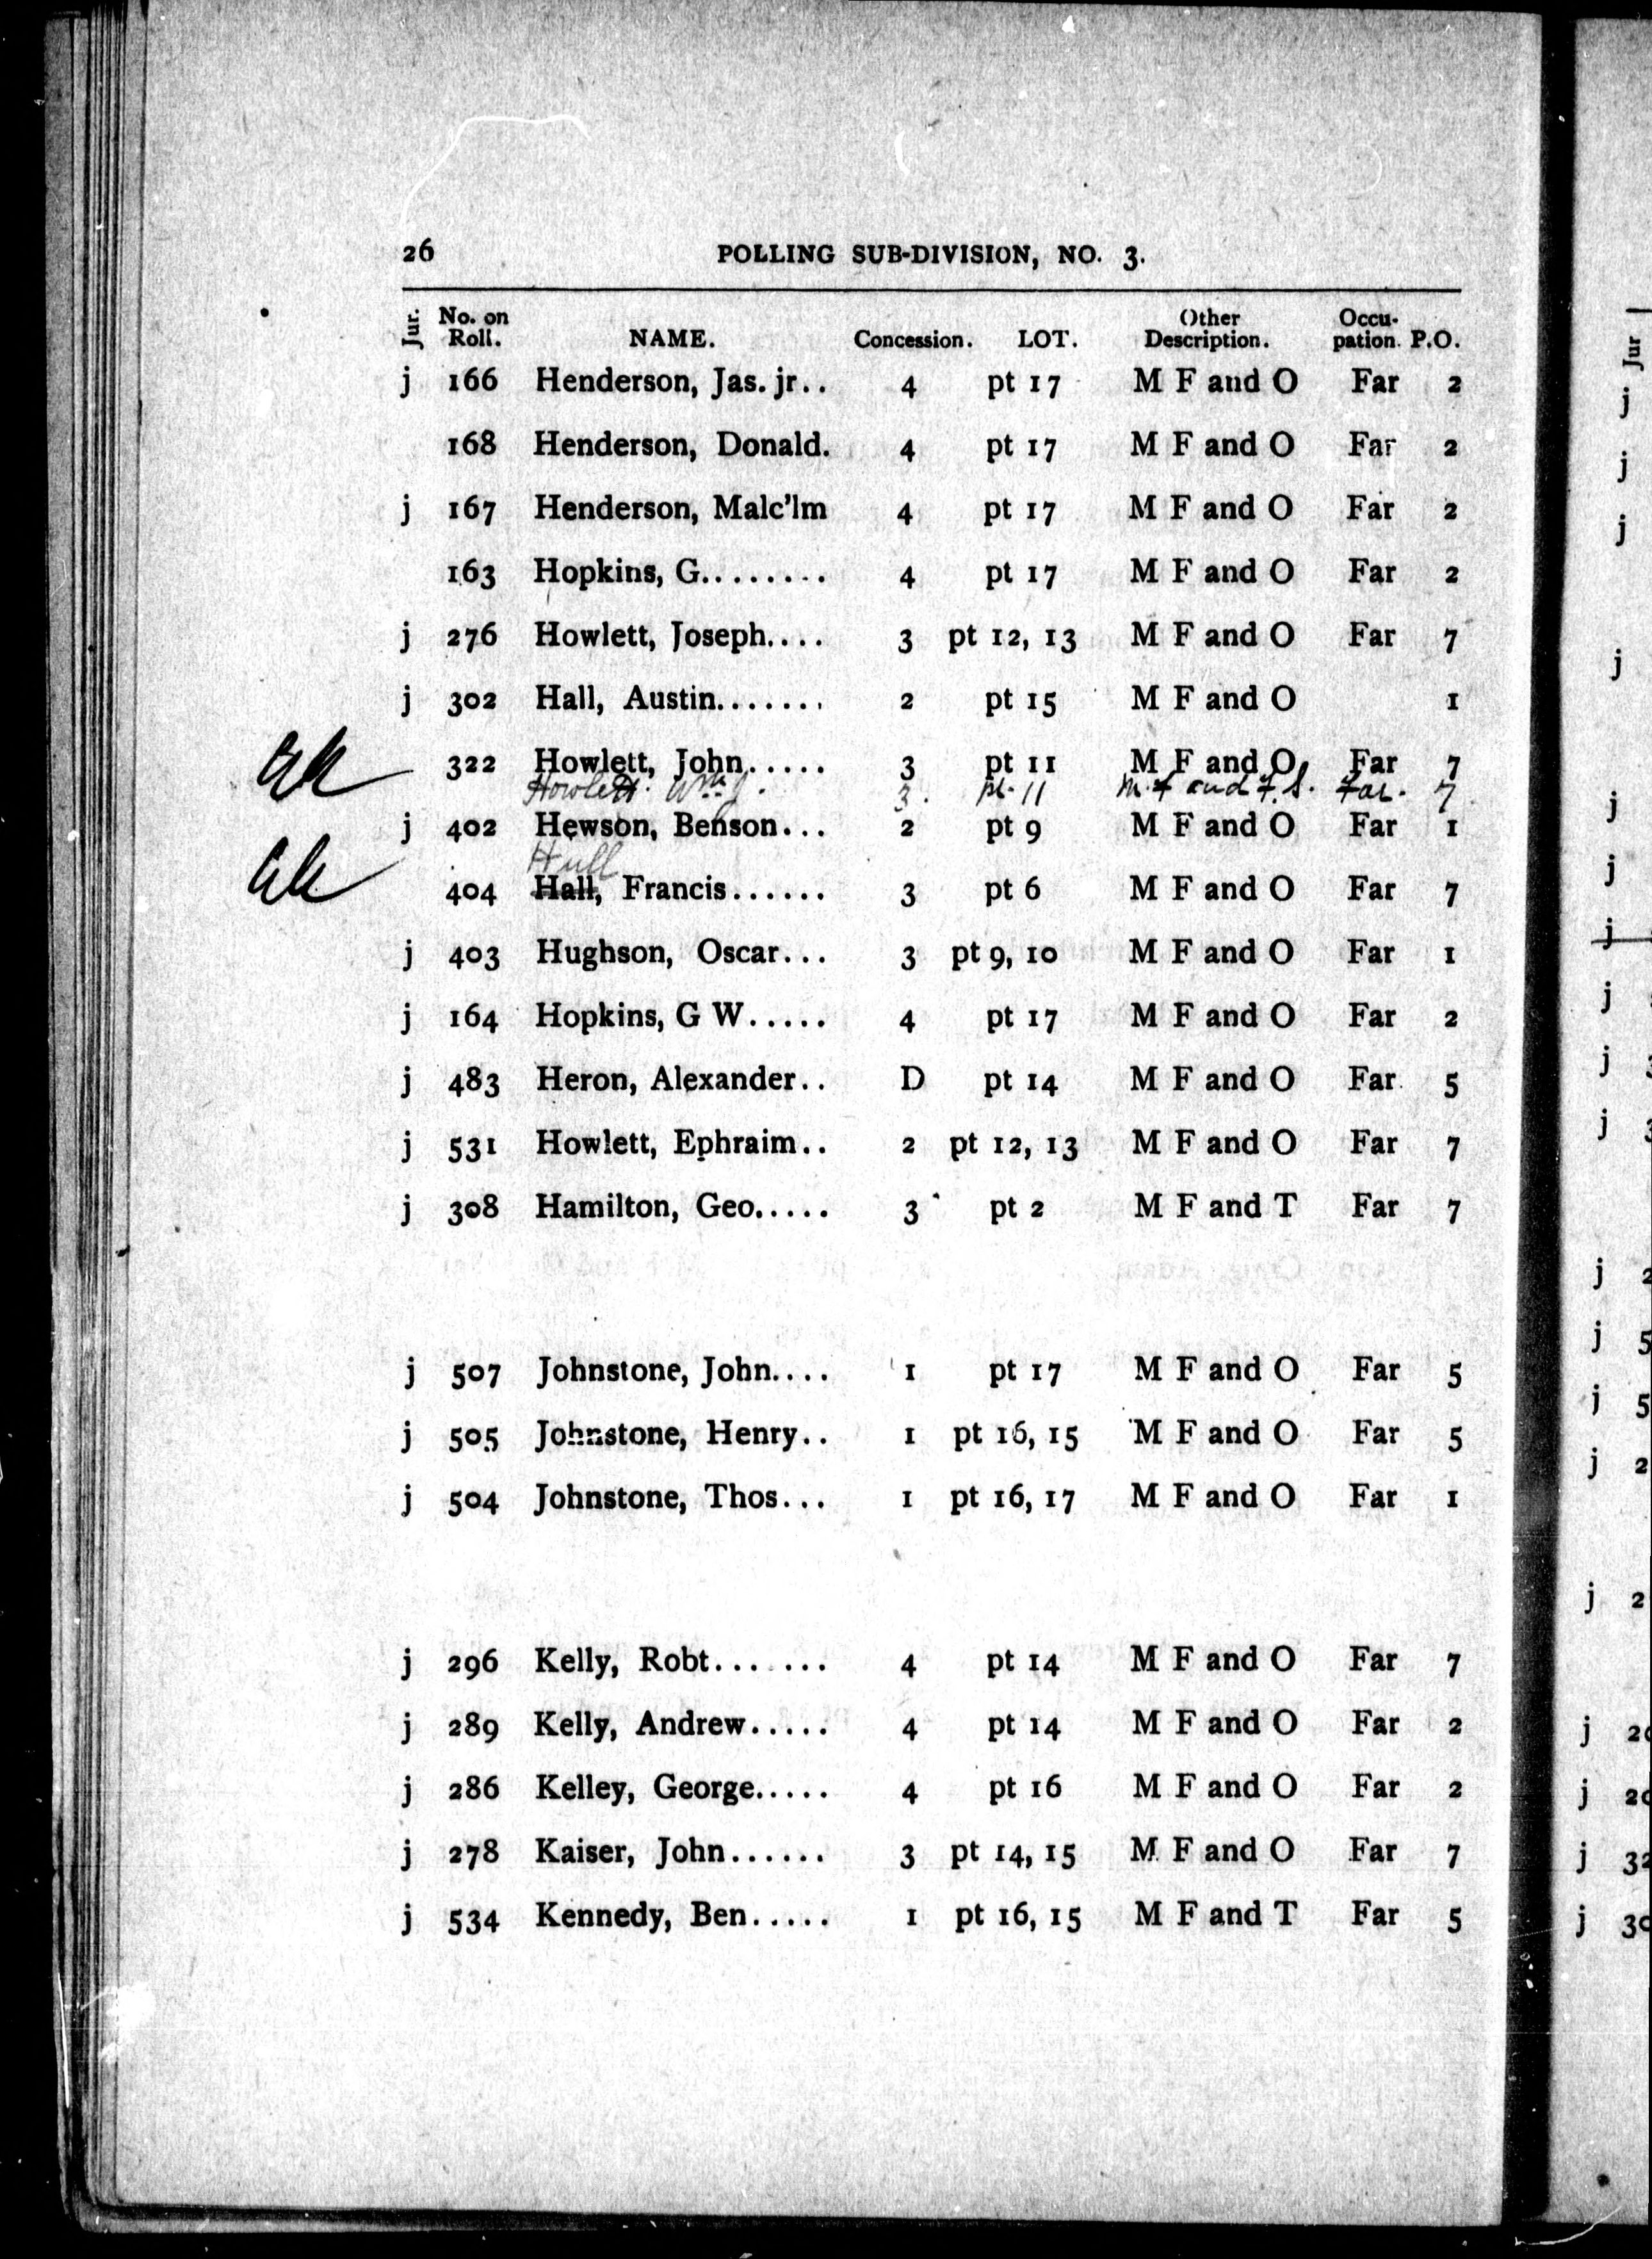 26 POLLING SUB-DIVISION, NO. 3.
Jur. No. on Roll. NAME. Concession. LOT. Other Description. Occu-pation. P.O.
j 166 Henderson, Jas. jr.. 4 pt 17 M F and O Far 2
168 Henderson, Donald. 4 pt 17 M F and O Far 2
j 167 Henderson, Malc'lm 4 pt 17 M F and O Far 2
163 Hopkins, G........ 4 pt 17 M F and O Far 2
j 276 Howlett, Joseph.... 3 pt 12, 13 M F and O Far 7
j 302 Hall, Austin....... 2 pt 15 M F and O 1
322 Howlett, John..... 3 pt 11 M F and O Far 7
Howlett. Wm J. 3. pt. 11 M.F and F.S. Far. 7
j 402 Hewson, Benson... 2 pt 9 M F and O Far 1
Hull
404 Hall, Francis...... 3 pt 6 M F and O Far 7
j 403 Hughson, Oscar... 3 pt 9, 10 M F and O Far 1
j 164 Hopkins, G W..... 4 pt 17 M F and O Far 2
j 483 Heron, Alexander.. D pt 14 M F and O Far 5
j 531 Howlett, Ephraim.. 2 pt 12, 13 M F and O Far 7
j 308 Hamilton, Geo..... 3 pt 2 M F and T Far 7
j 507 Johnstone, John.... 1 pt 17 M F and O Far 5
j 505 Johnstone, Henry.. 1 pt 16, 15 M F and O Far 5
j 504 Johnstone, Thos... 1 pt 16, 17 M F and O Far 1
j 296 Kelly, Robt....... 4 pt 14 M F and O Far 7
j 289 Kelly, Andrew..... 4 pt 14 M F and O Far 2
j 286 Kelley, George..... 4 pt 16 M F and O Far 2
j 278 Kaiser, John...... 3 pt 14, 15 M F and O Far 7
j 534 Kennedy, Ben..... 1 pt 16, 15 M F and T Far 5
Jur
j
j
j
j
j
j
j
j
j
j
j 2
j 5
j 5
j 2
j 2
j
j
j
j